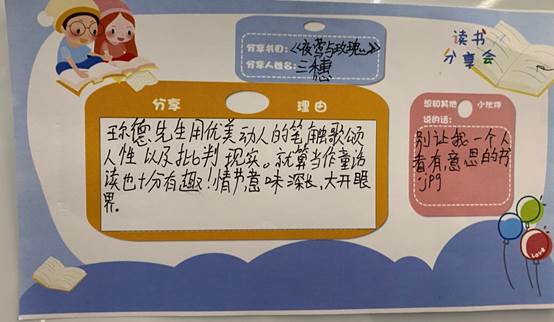 读书
分享会
分享书目:《夜莺与玫瑰》
分享人姓名:三穗
分享理由
王尔德先生用优美动人的笔触歌颂
人性以及批判现实。就算当作童话
读也十分有趣!情节意味深长,大开眼
界。
想和其他小伙伴
说的话:
别让我一个人
看有意思的书
.jpg
Love